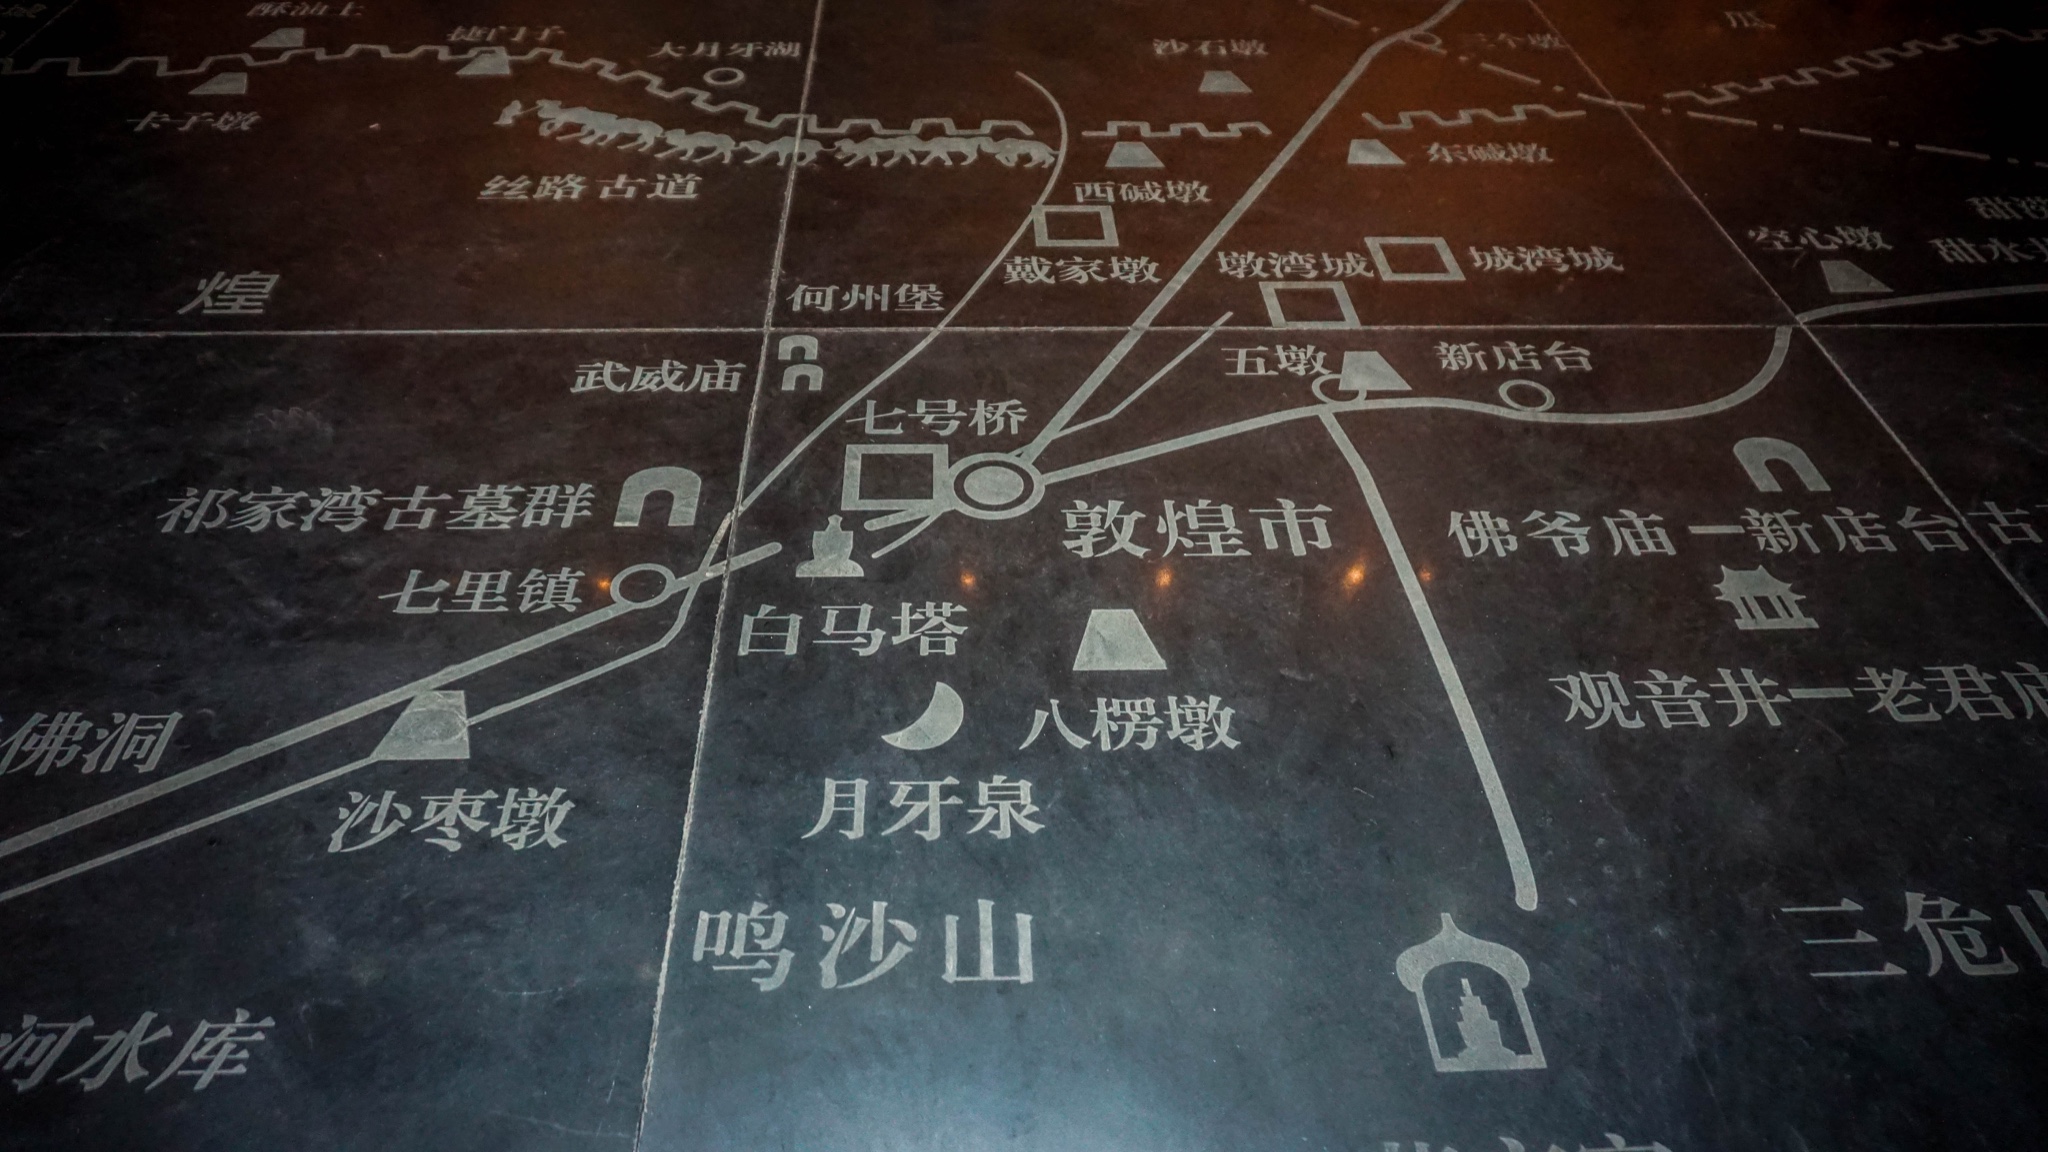 捷门子
大月牙湖
沙石墩
三个墩
瓜
卡子墩
东碱墩
丝路古道
西碱墩
空心墩
甜水
戴家墩
墩湾城
城湾城
煌
何州堡
武威庙
五墩
新店台
七号桥
祁家湾古墓群
敦煌市
佛爷庙—新店台古
七里镇
白马塔
观音井—老君庙
佛洞
八楞墩
沙枣墩
月牙泉
鸣沙山
三危山
河水库